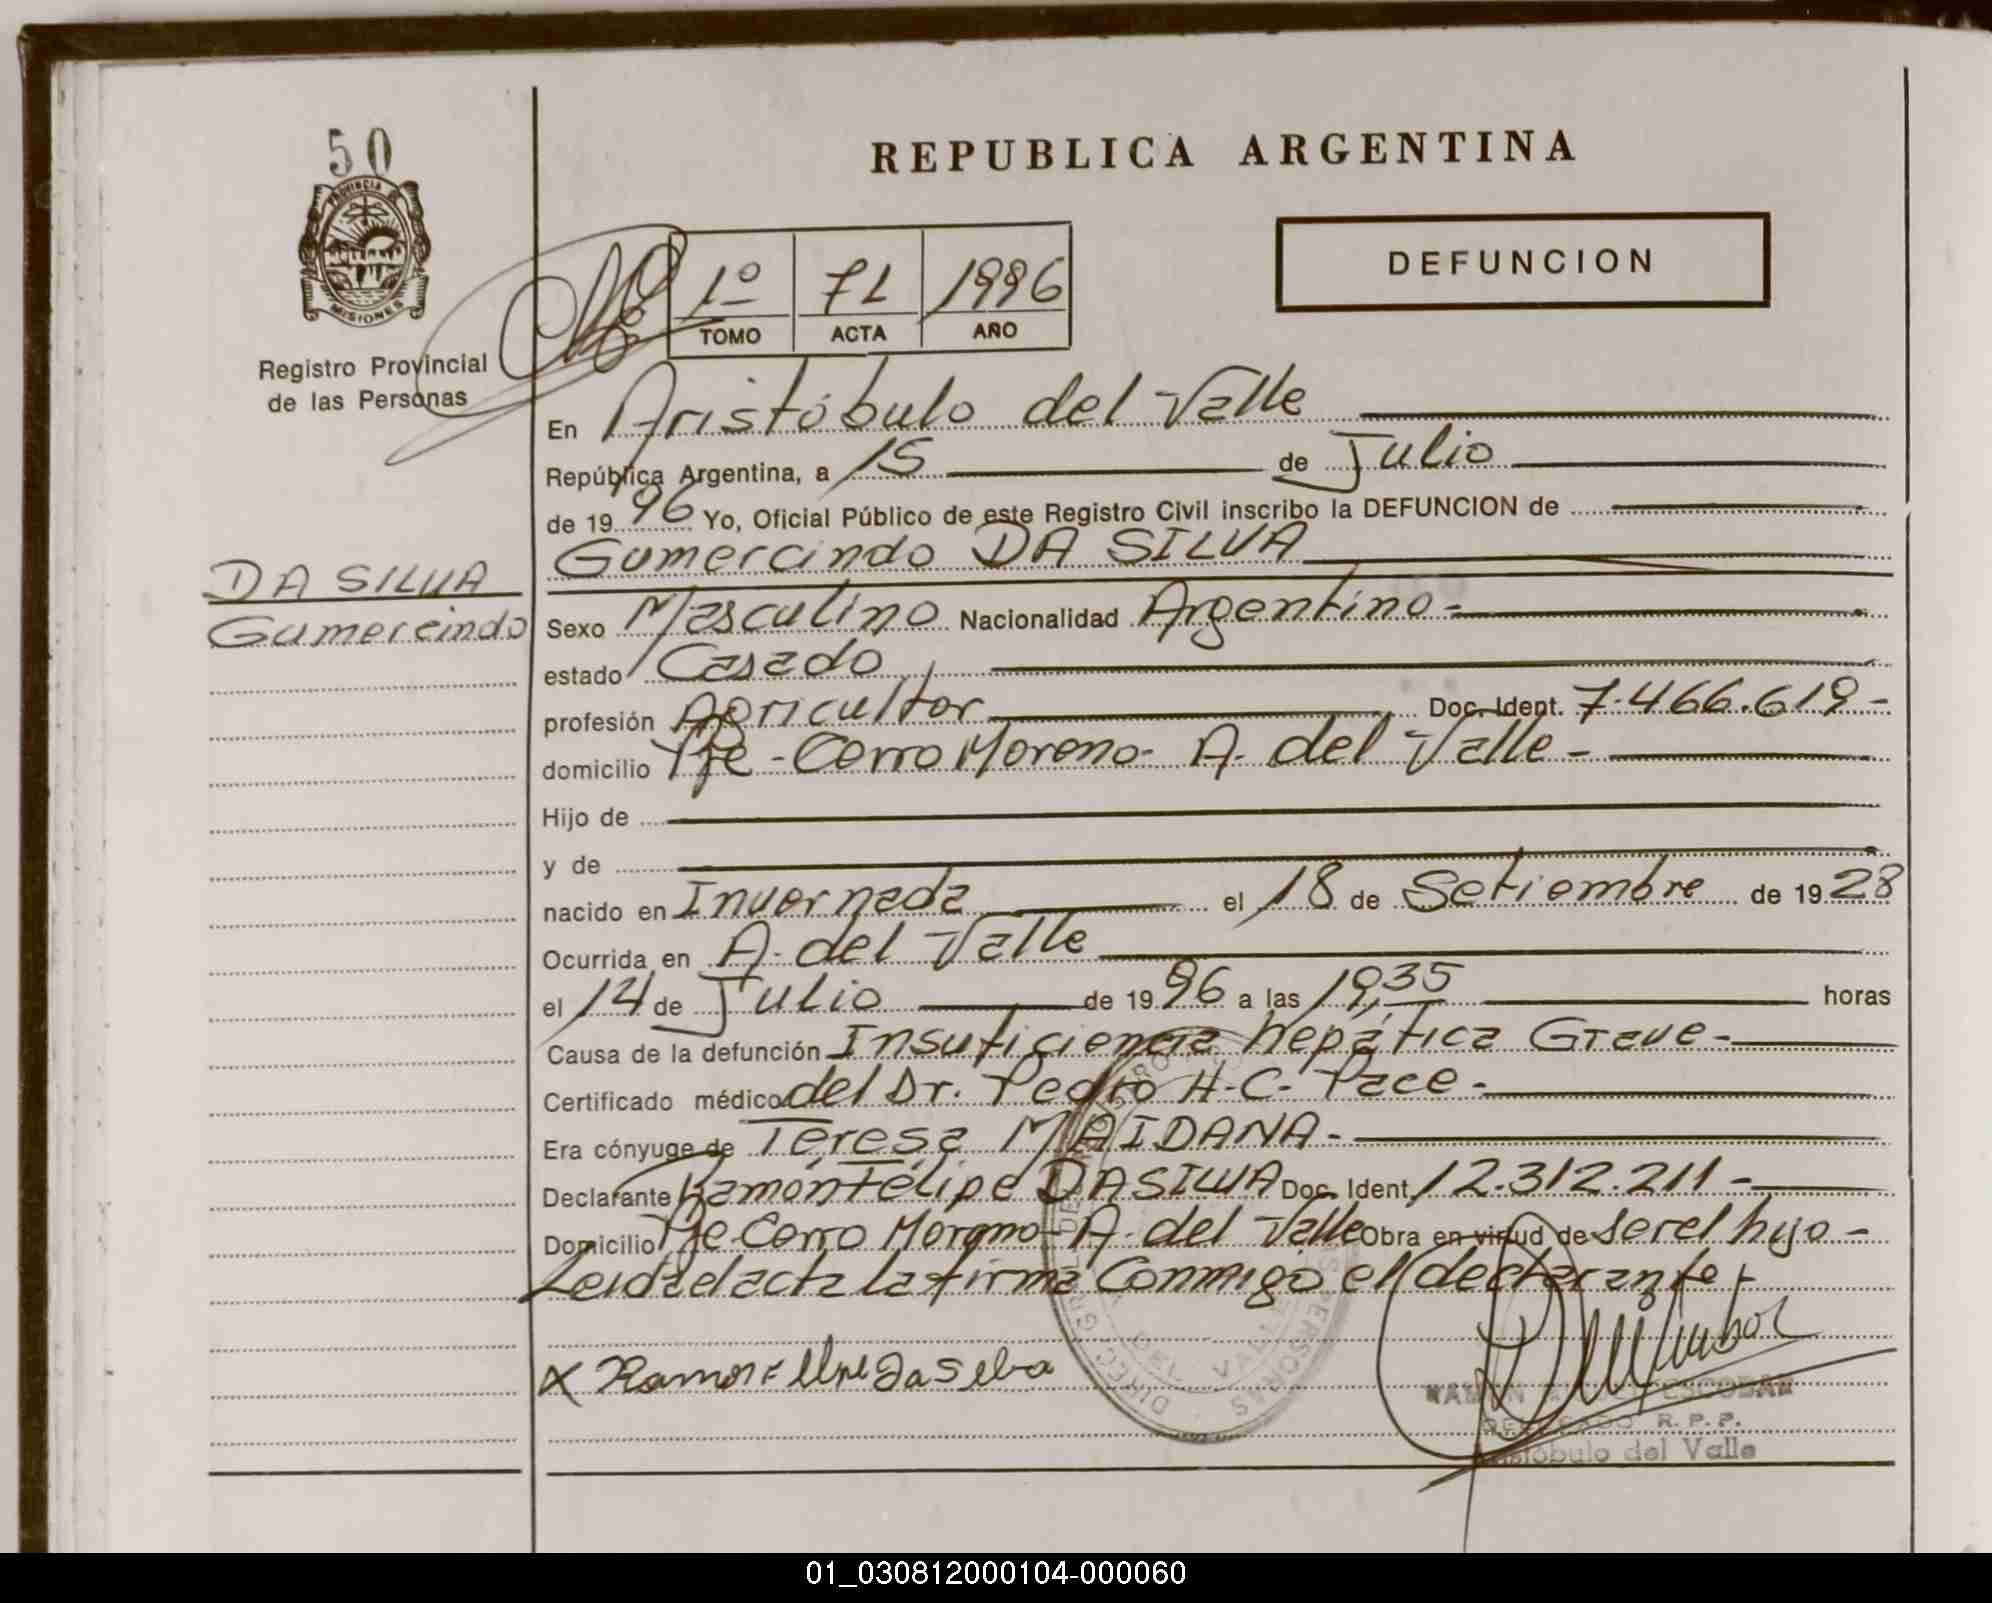 50
PROVINCIA DE
MISIONES
Registro Provincial
de las Personas
REPUBLICA ARGENTINA
DEFUNCION
1º 71 1996
TOMO ACTA AÑO
En Aristóbulo del Valle
República Argentina, a 15 de Julio
de 1996 Yo, Oficial Público de este Registro Civil inscribo la DEFUNCION de
Gumercindo DA SILVA
DA SILVA
Gumercindo
Sexo Masculino Nacionalidad Argentino-
estado Casado
profesión Agricultor Doc. Ident. 7.466.619-
domicilio Pje - Cerro Moreno- A. del Valle-
Hijo de
y de
nacido en Invernada el 18 de Setiembre de 1928
Ocurrida en A. del Valle
el 14 de Julio de 1996 a las 19,35 horas
Causa de la defunción Insuficiencia hepática Grave-
Certificado médico del Dr. Pedro H.C. Pace-
Era cónyuge de Teresa MAIDANA-
Declarante Ramón Felipe DA SILVA Doc. Ident. 12.312.211-
Domicilio Pje Cerro Moreno A. del Valle Obra en virtud de ser el hijo-
Leida el acta la firma Conmigo el declarante-
x Ramon Felipe Da Selva
DEL VALLE
ESCOBAR
DELEGADO R. P. P.
Aristóbulo del Valle
01_030812000104-000060